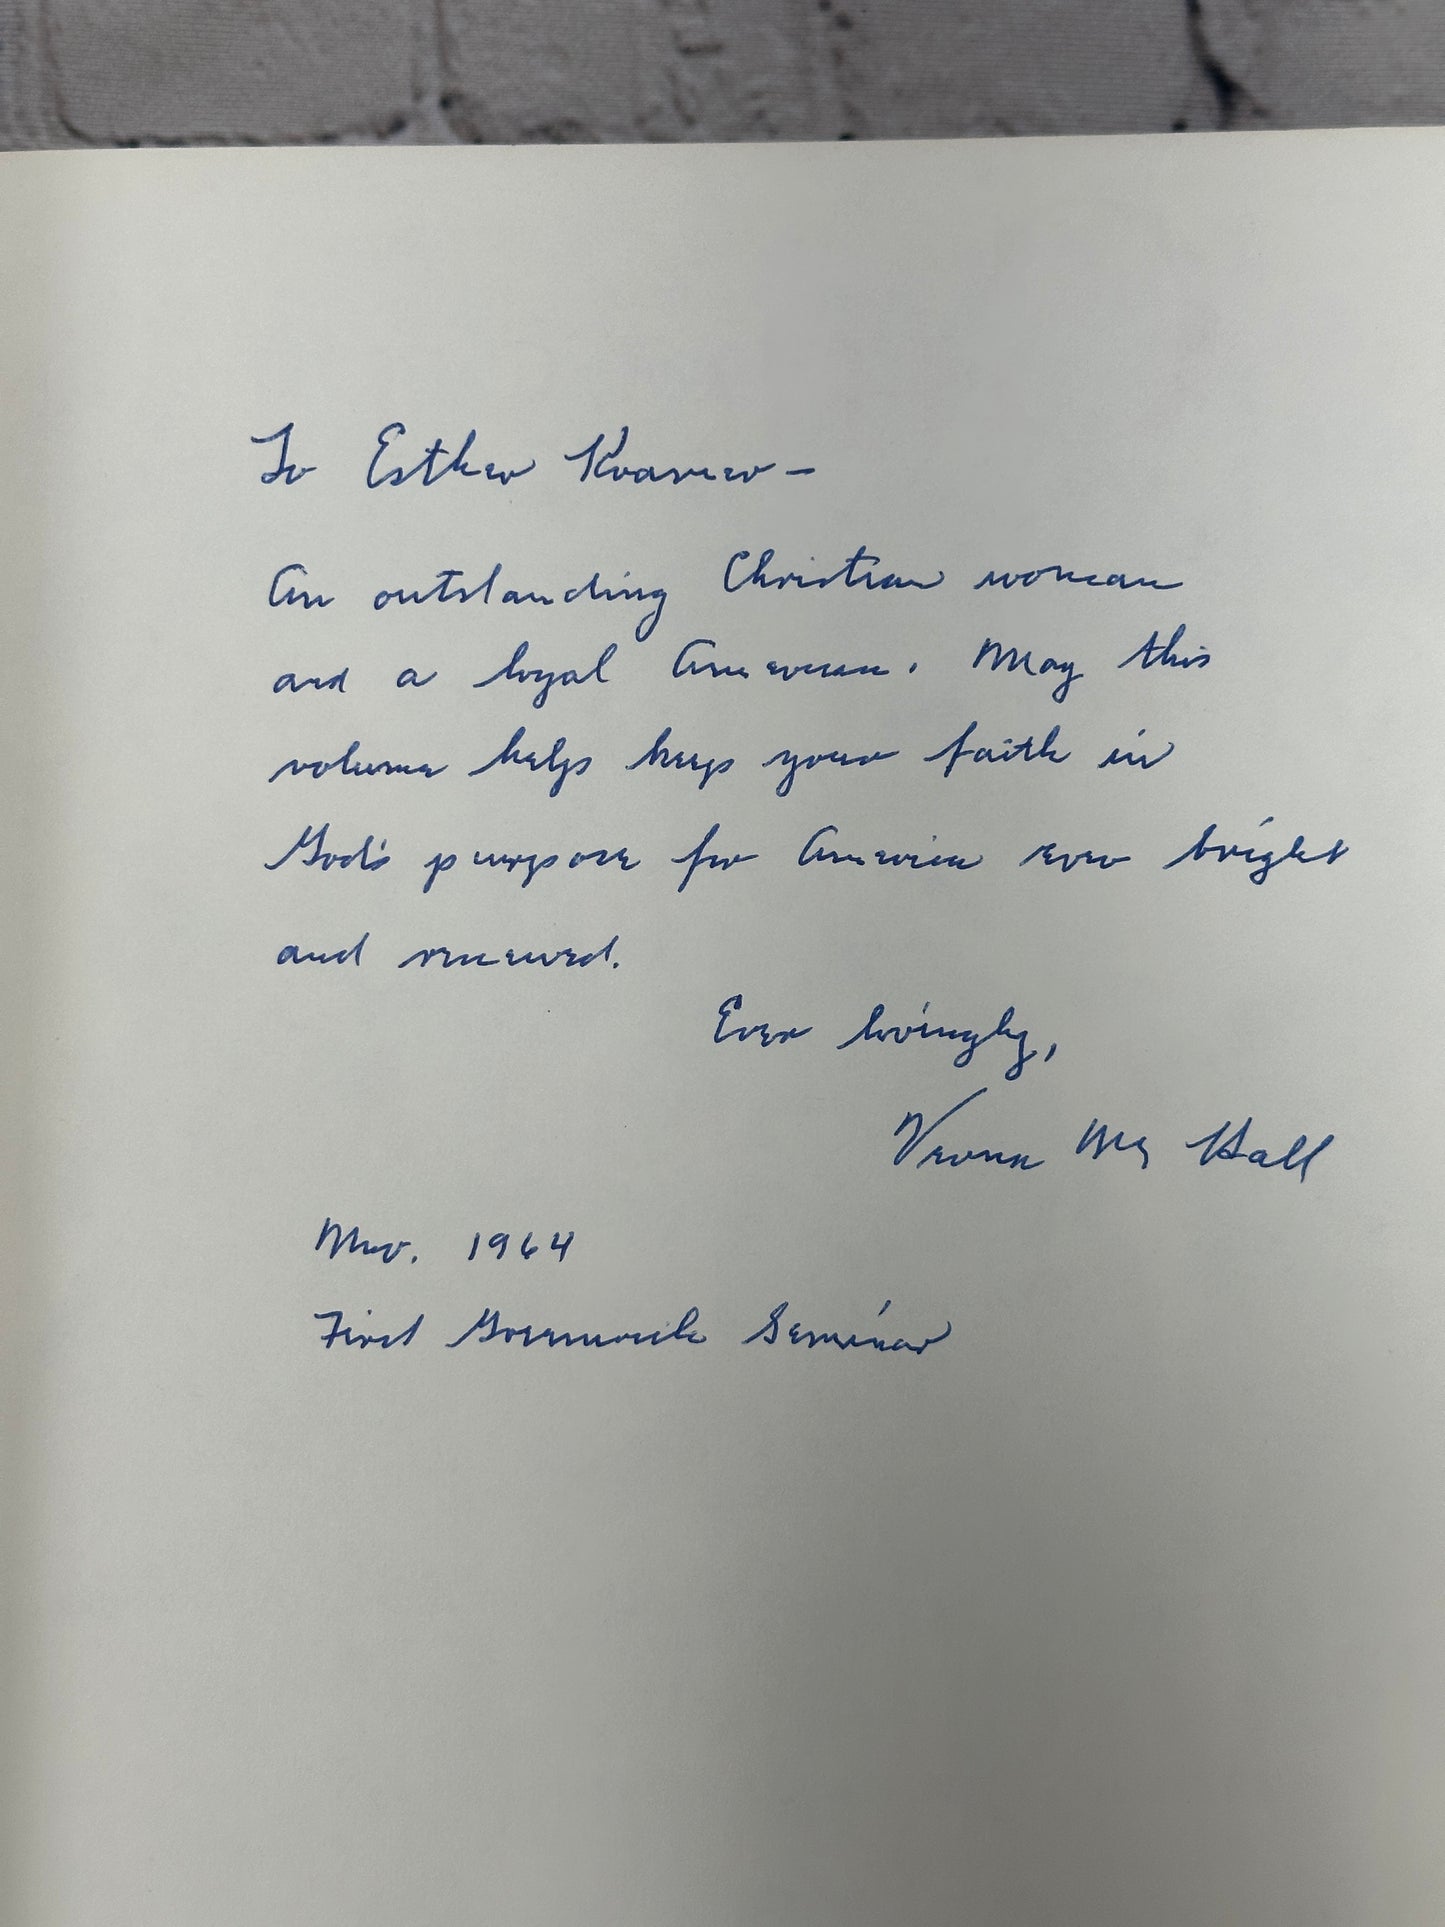 To Esther Kramer –
An outstanding Christian woman
and a loyal American. May this
volume helps keep your faith in
God's purpose for America ever bright
and renewed.
Ever lovingly,
Verna M. Hall
Nov. 1964
First Greenwich Seminar